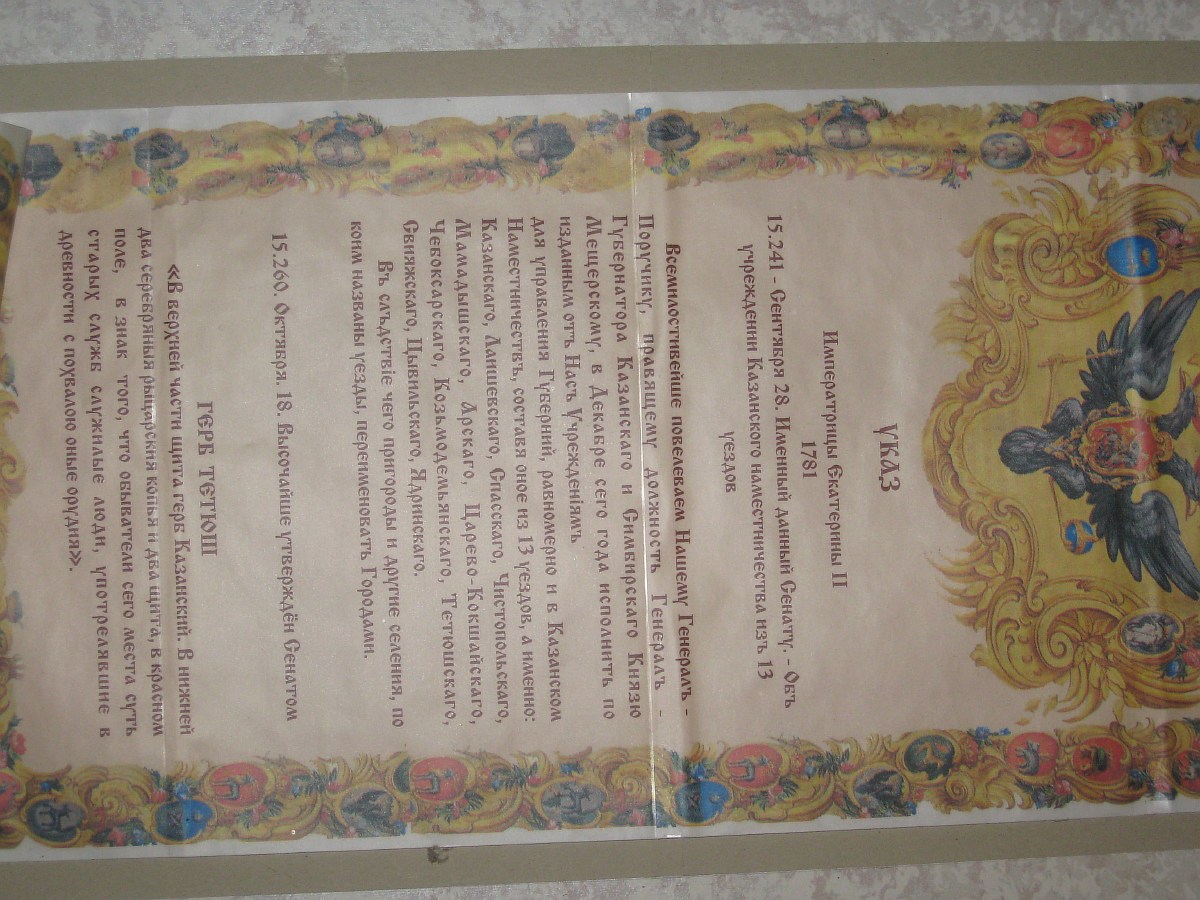 УКАЗ
Императрицы Екатерины II
1781
15.241 - Сентября 28. Именный данный Сенату. - Объ
учреждении Казанского наместничества изъ 13
уездов
Всемилостивейше повелеваем Нашему Генералъ -
Поручику, правящему должность Генералъ -
Губернатора Казанскаго и Симбирскаго Князю
Мещерскому, в Декабре сего года исполнить по
изданным отъ Насъ Учрежденіямъ
для управления Губерний, равномерно и в Казанском
Наместничествъ, составя оное из 13 уездов, а именно:
Казанскаго, Лаишевскаго, Спасскаго, Чистопольскаго,
Мамадышскаго, Арскаго, Царево-Кокшайскаго,
Чебоксарскаго, Козьмодемьянскаго, Тетюшскаго,
Свияжскаго, Цывильскаго, Ядринскаго.
Въ слъдствіе чего пригороды и другие селения, по
коим названы уезды, переименовать Городами.
15.260. Октября. 18. Высочайше утверждён Сенатом
ГЕРБ ТЕТЮШ
«В верхней части щита герб Казанский. В нижней
два серебряныя рыцарския копья и два щита, в красном
поле, в знак того, что обыватели сего места суть
старых служб служилые люди, употреблявшие в
древности с похвалою оные орудия».